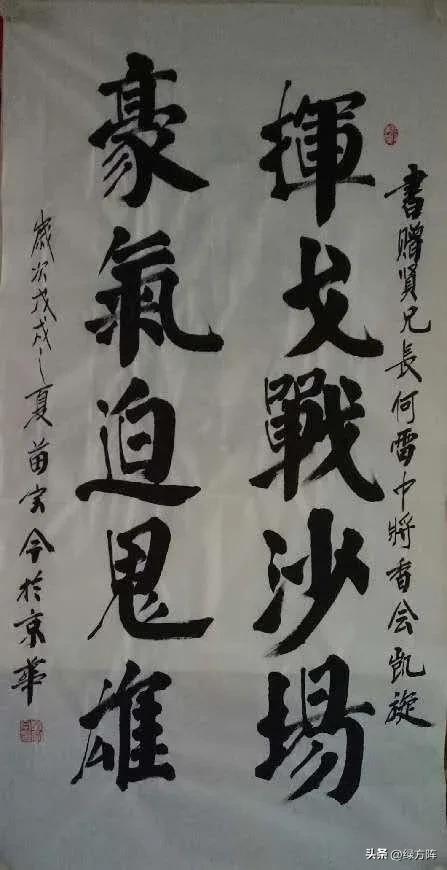 書贈賢兄長何雷中將香会凱旋
揮戈戰沙場
豪氣迫鬼雄
歲次戊戌之夏苗宝今於京華
头条 @绿方阵